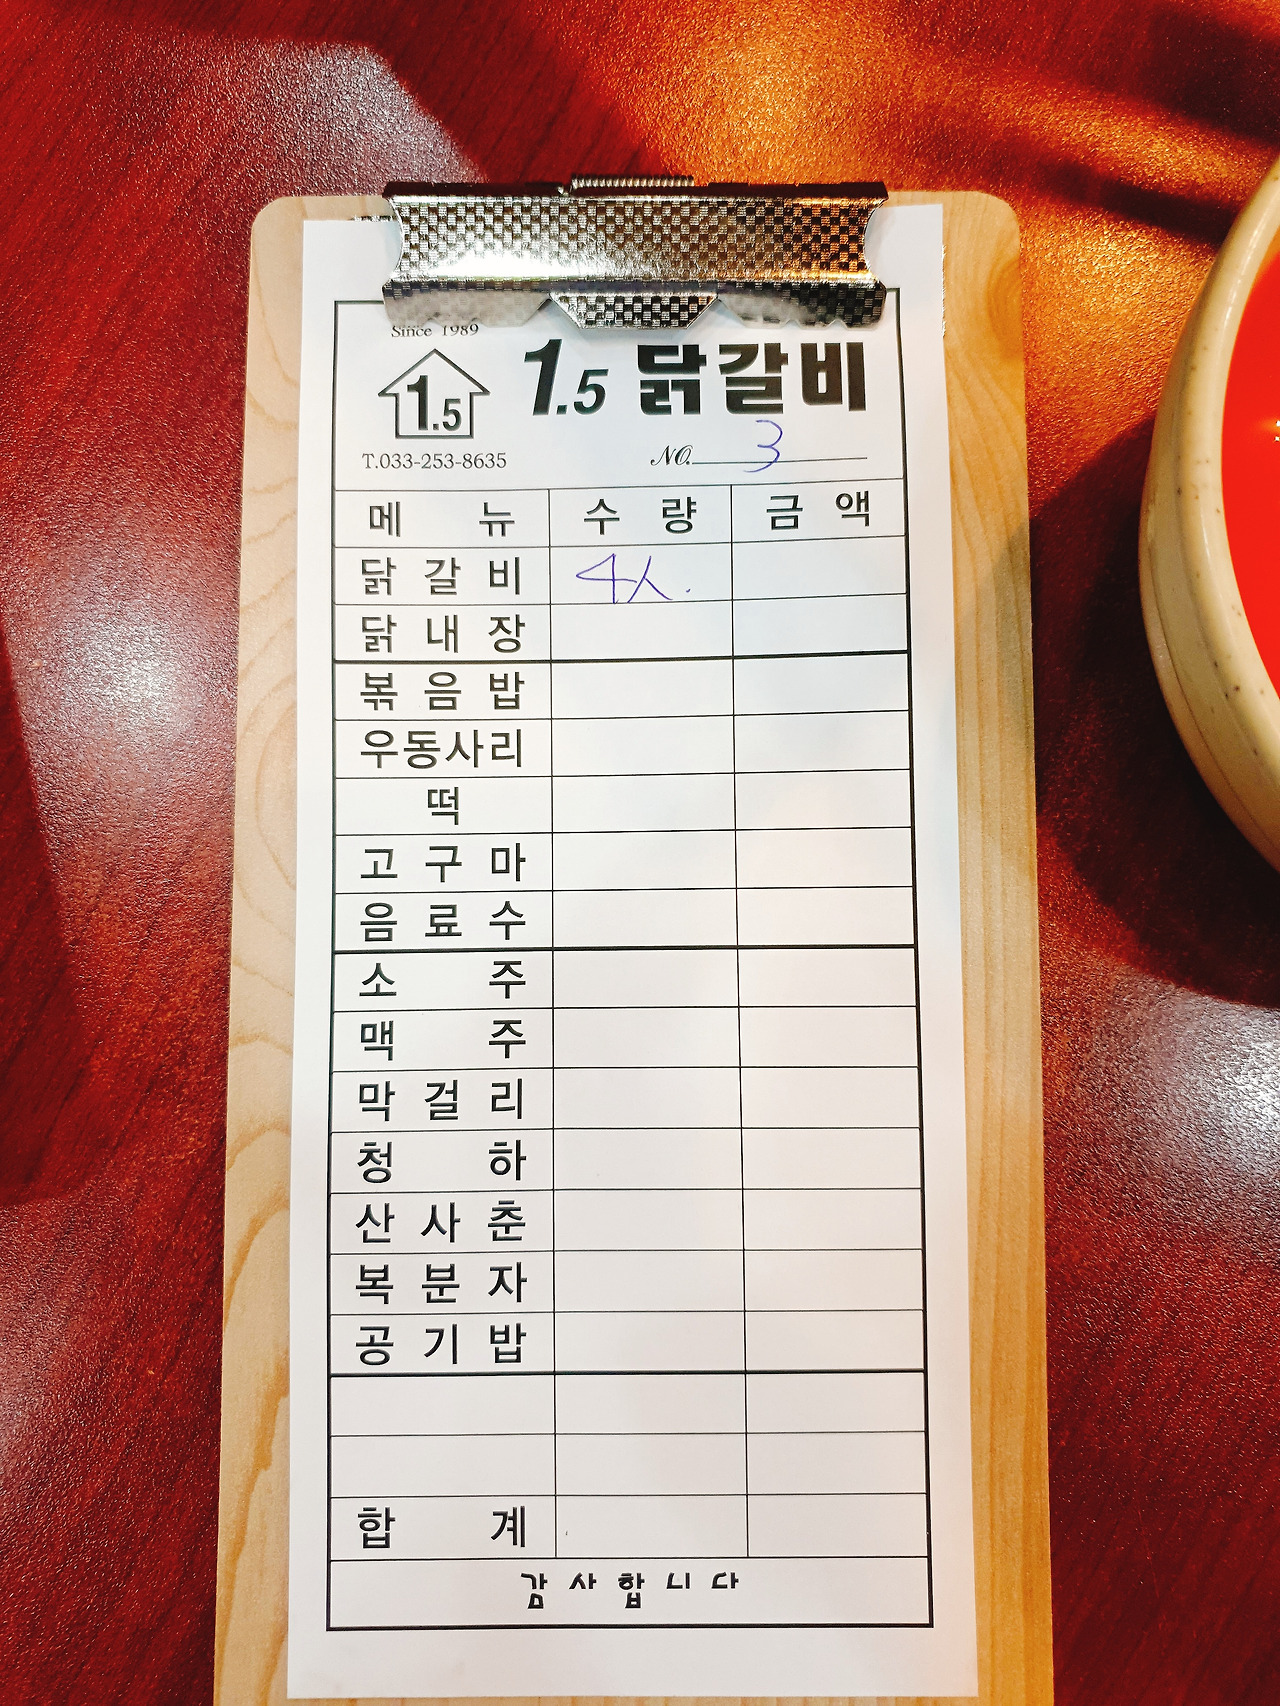 Since 1989
1.5
1.5 닭갈비
T.033-253-8635
NO. 3
메뉴 수량 금액
닭갈비 4人.
닭내장
볶음밥
우동사리
떡
고구마
음료수
소주
맥주
막걸리
청하
산사춘
복분자
공기밥
합계
감사합니다